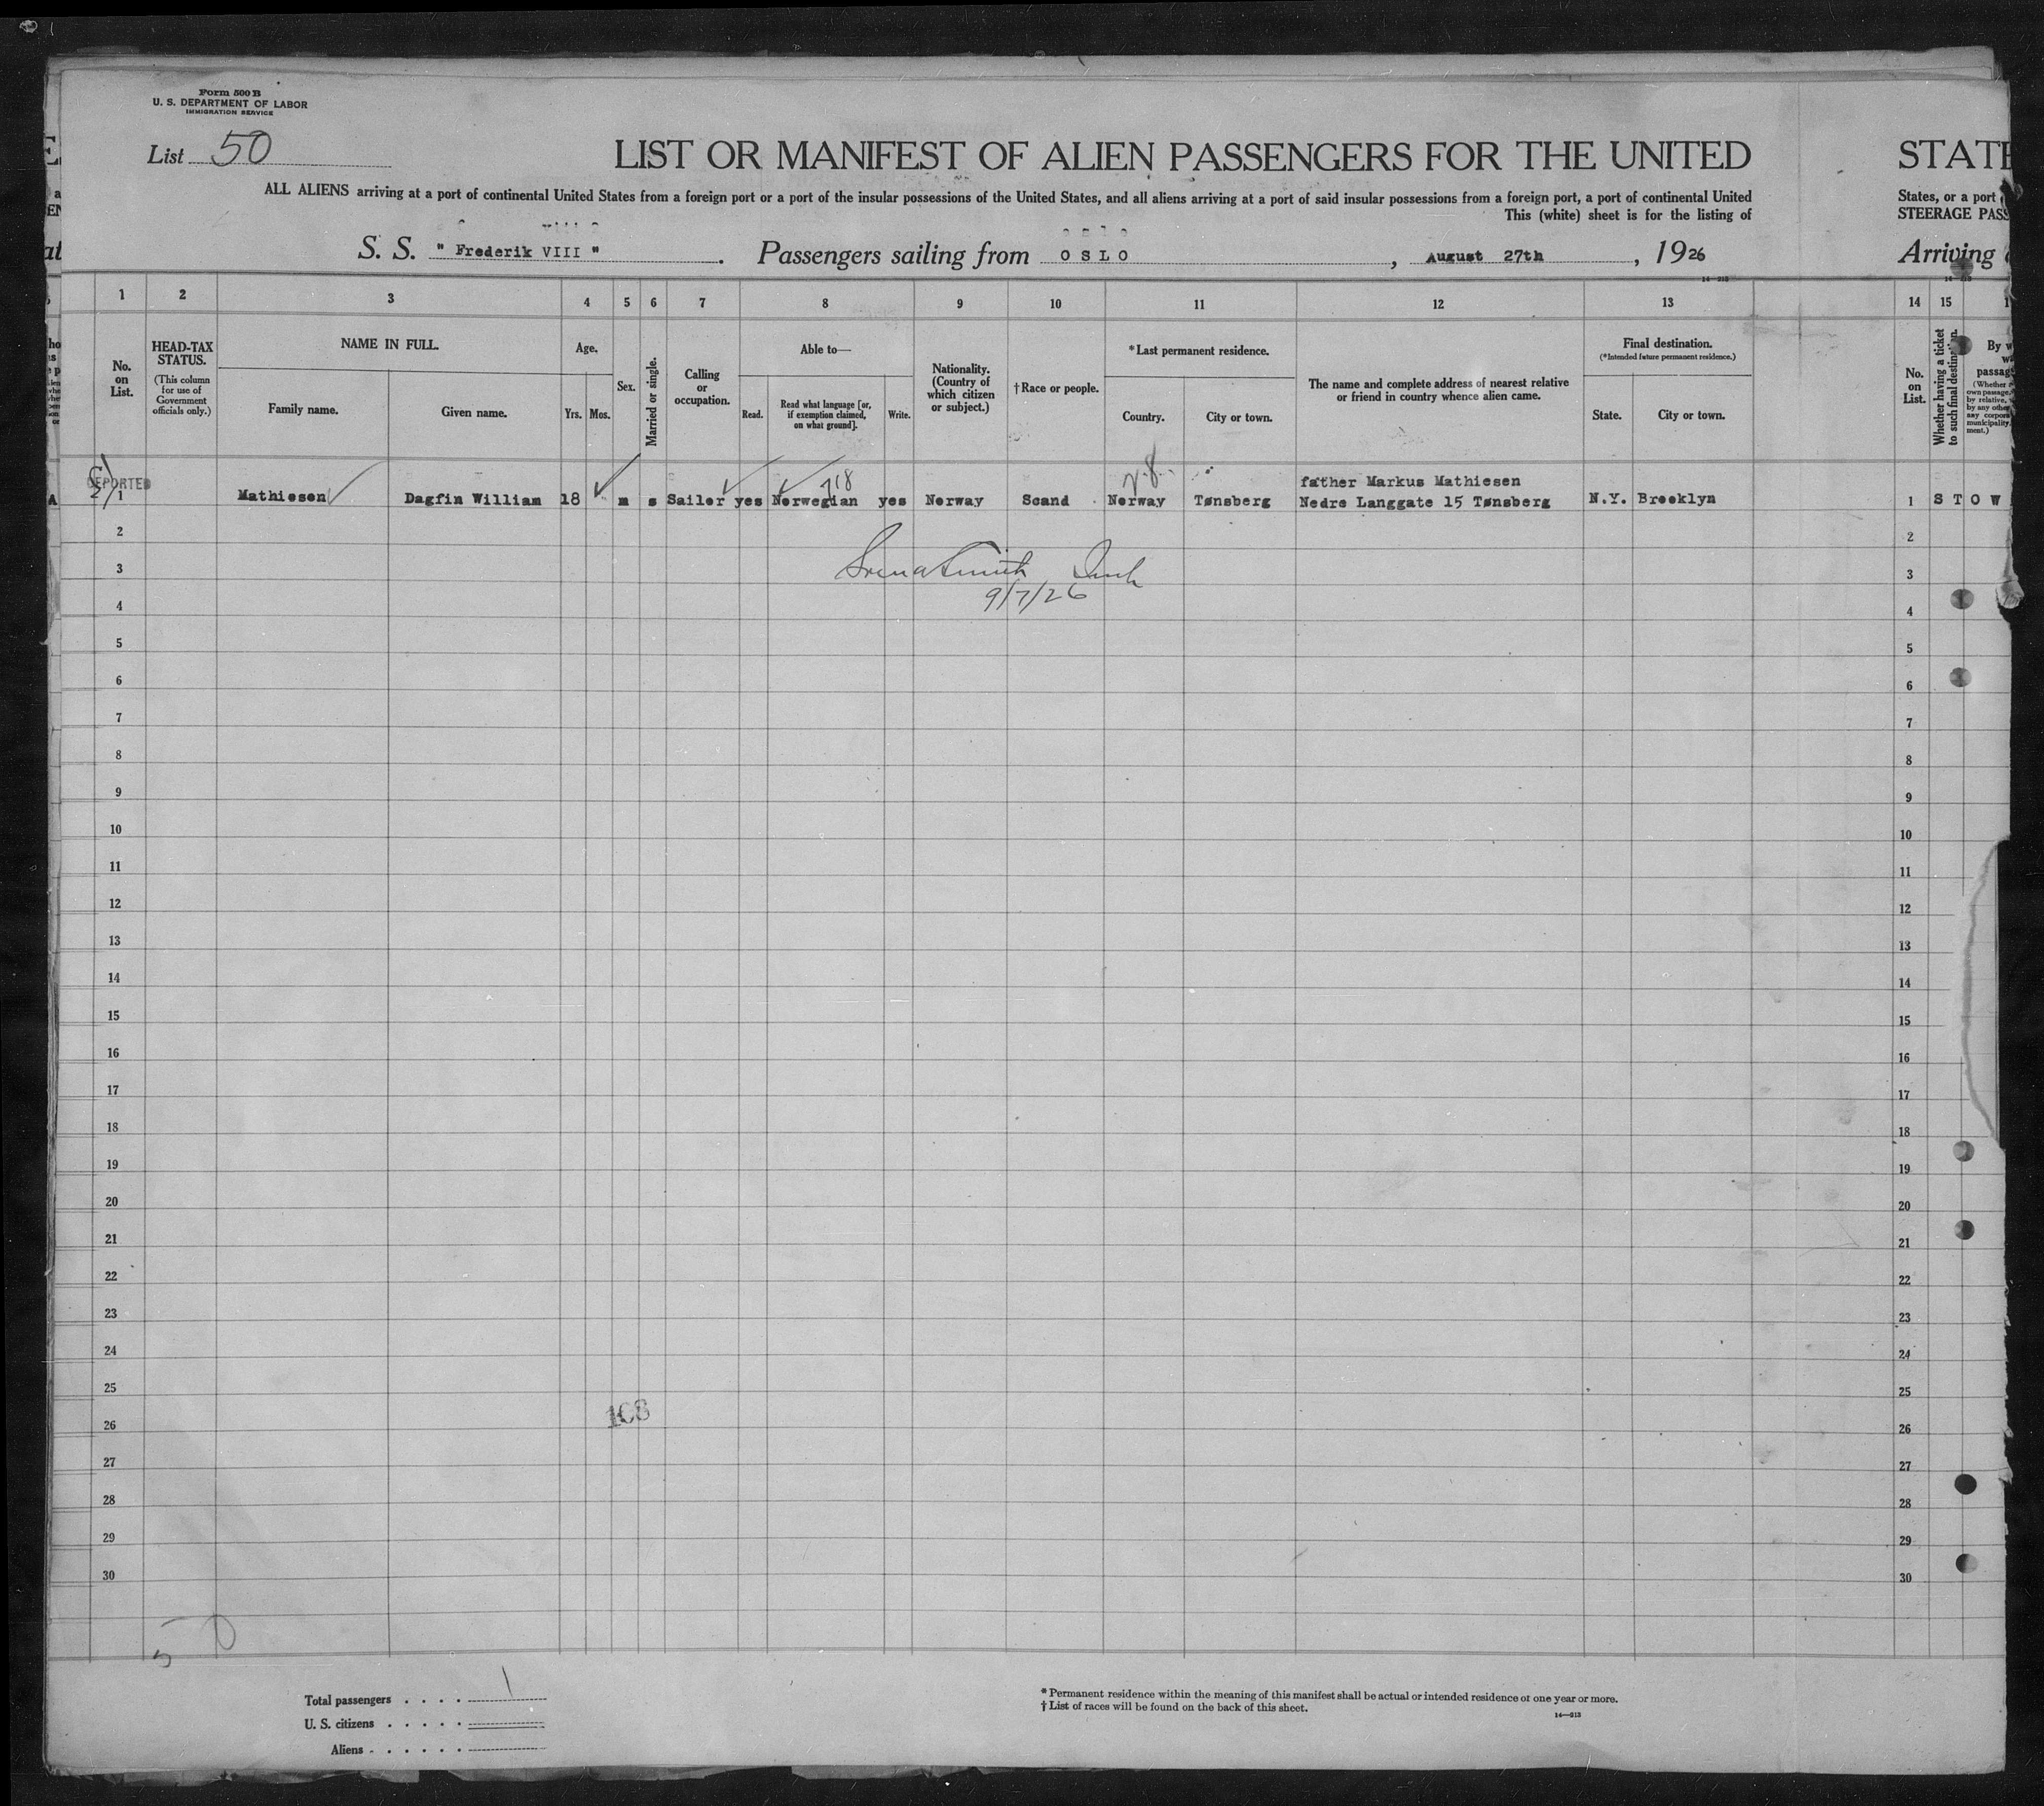 Form 500 B
U. S. DEPARTMENT OF LABOR
IMMIGRATION SERVICE
List 50
LIST OR MANIFEST OF ALIEN PASSENGERS FOR THE UNITED
STATE
ALL ALIENS arriving at a port of continental United States from a foreign port or a port of the insular possessions of the United States, and all aliens arriving at a port of said insular possessions from a foreign port, a port of continental United
States, or a port
This (white) sheet is for the listing of
STEERAGE PASS
S. S. " Frederik VIII ". Passengers sailing from OSLO, August 27th, 1926
Arriving
1 2 3 4 5 6 7 8 9 10 11 12 13 14 15
No. on List.
HEAD-TAX STATUS.
(This column for use of Government officials only.)
NAME IN FULL.
Family name.
Given name.
Age.
Yrs. Mos.
Sex.
Married or single.
Calling or occupation.
Able to—
Read.
Read what language [or, if exemption claimed, on what ground].
Write.
Nationality. (Country of which citizen or subject.)
† Race or people.
*Last permanent residence.
Country.
City or town.
The name and complete address of nearest relative or friend in country whence alien came.
Final destination.
(*Intended future permanent residence.)
State.
City or town.
No. on List.
Whether having a ticket to such final destination.
By w
passag
DEPORTED
1 Mathiesen Dagfin William 18 m s Sailor yes Norwegian yes Norway Scand Norway Tønsberg father Markus Mathiesen
Nedre Langgate 15 Tønsberg N.Y. Brooklyn 1 S T O W
2 2
3 3
9/7/26
4 4
5 5
6 6
7 7
8 8
9 9
10 10
11 11
12 12
13 13
14 14
15 15
16 16
17 17
18 18
19 19
20 20
21 21
22 22
23 23
24 24
25 25
26 26
168
27 27
28 28
29 29
30 30
50
Total passengers . . . . 1
U. S. citizens . . . . .
Aliens . . . . . .
* Permanent residence within the meaning of this manifest shall be actual or intended residence of one year or more.
† List of races will be found on the back of this sheet.
14—213